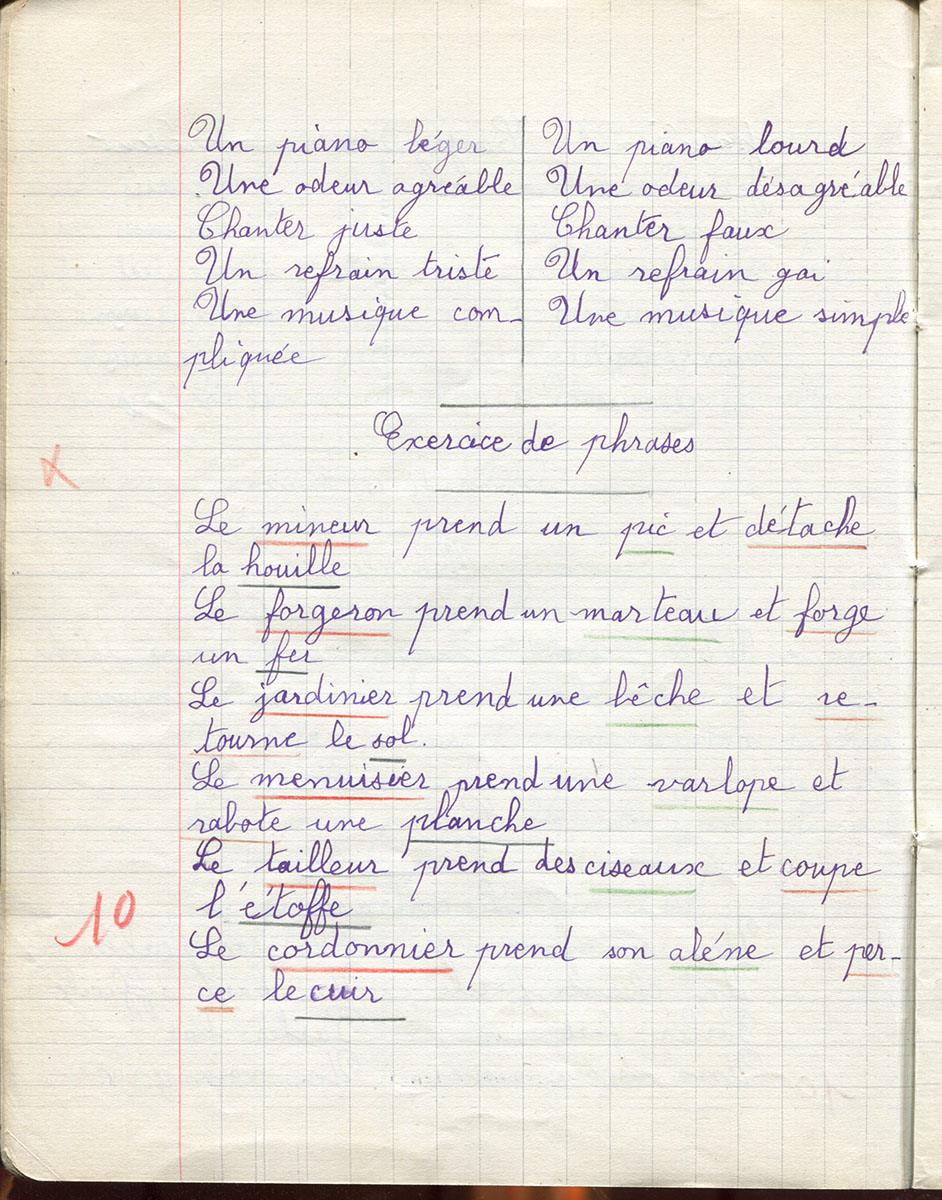 Un piano léger
Une odeur agréable
Chanter juste
Un refrain triste
Une musique com-
pliquée
Un piano lourd
Une odeur désagréable
Chanter faux
Un refrain gai
Une musique simple
Exercice de phrases
Le mineur prend un pic et détache
la houille
Le forgeron prend un marteau et forge
un fer
Le jardinier prend une bêche et re-
tourne le sol.
Le menuisier prend une varlope et
rabote une planche
Le tailleur prend des ciseaux et coupe
l'étoffe
10
Le cordonnier prend son aléne et per-
ce le cuir